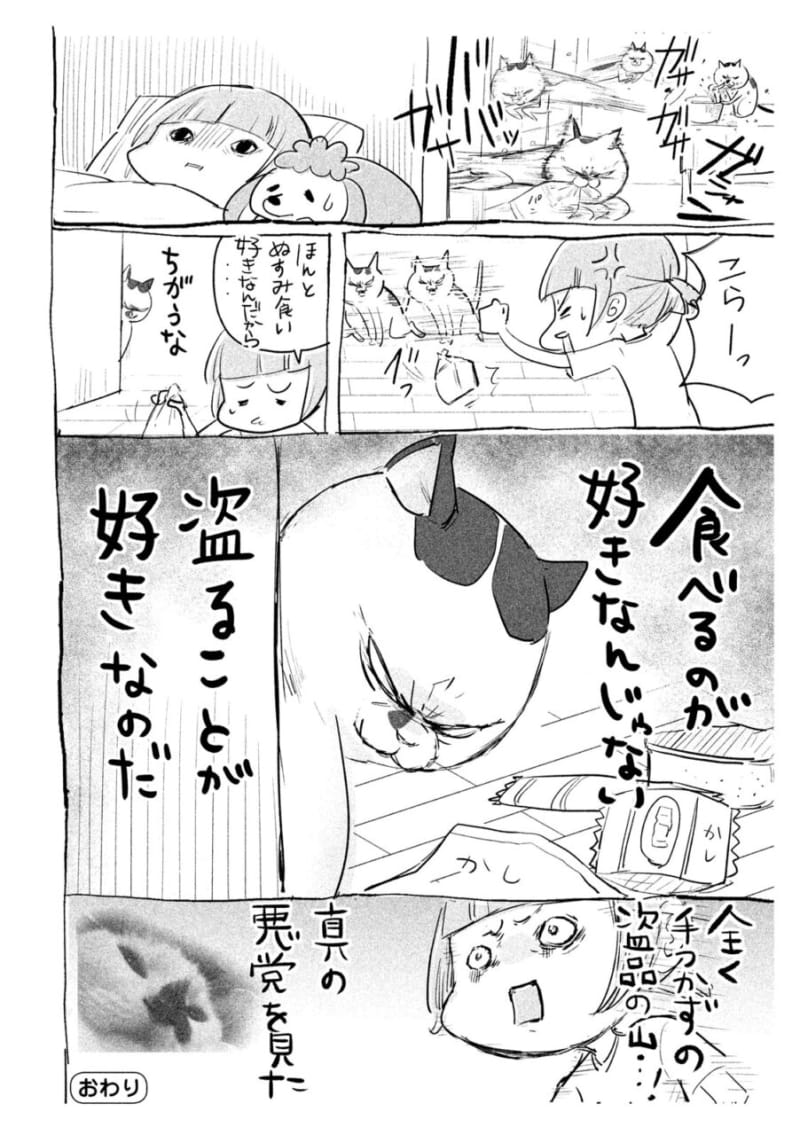 ガサ
ガサ
ガサッ
ガバッ
こらーっ
ほんと
ぬすみ食い
好きなんだから
…
ちがうな
食べるのが
好きなんじゃない
かし
かし
盗ることが
好きなのだ
全く
手つかずの
盗品の山…!
真の
悪党を見た
おわり